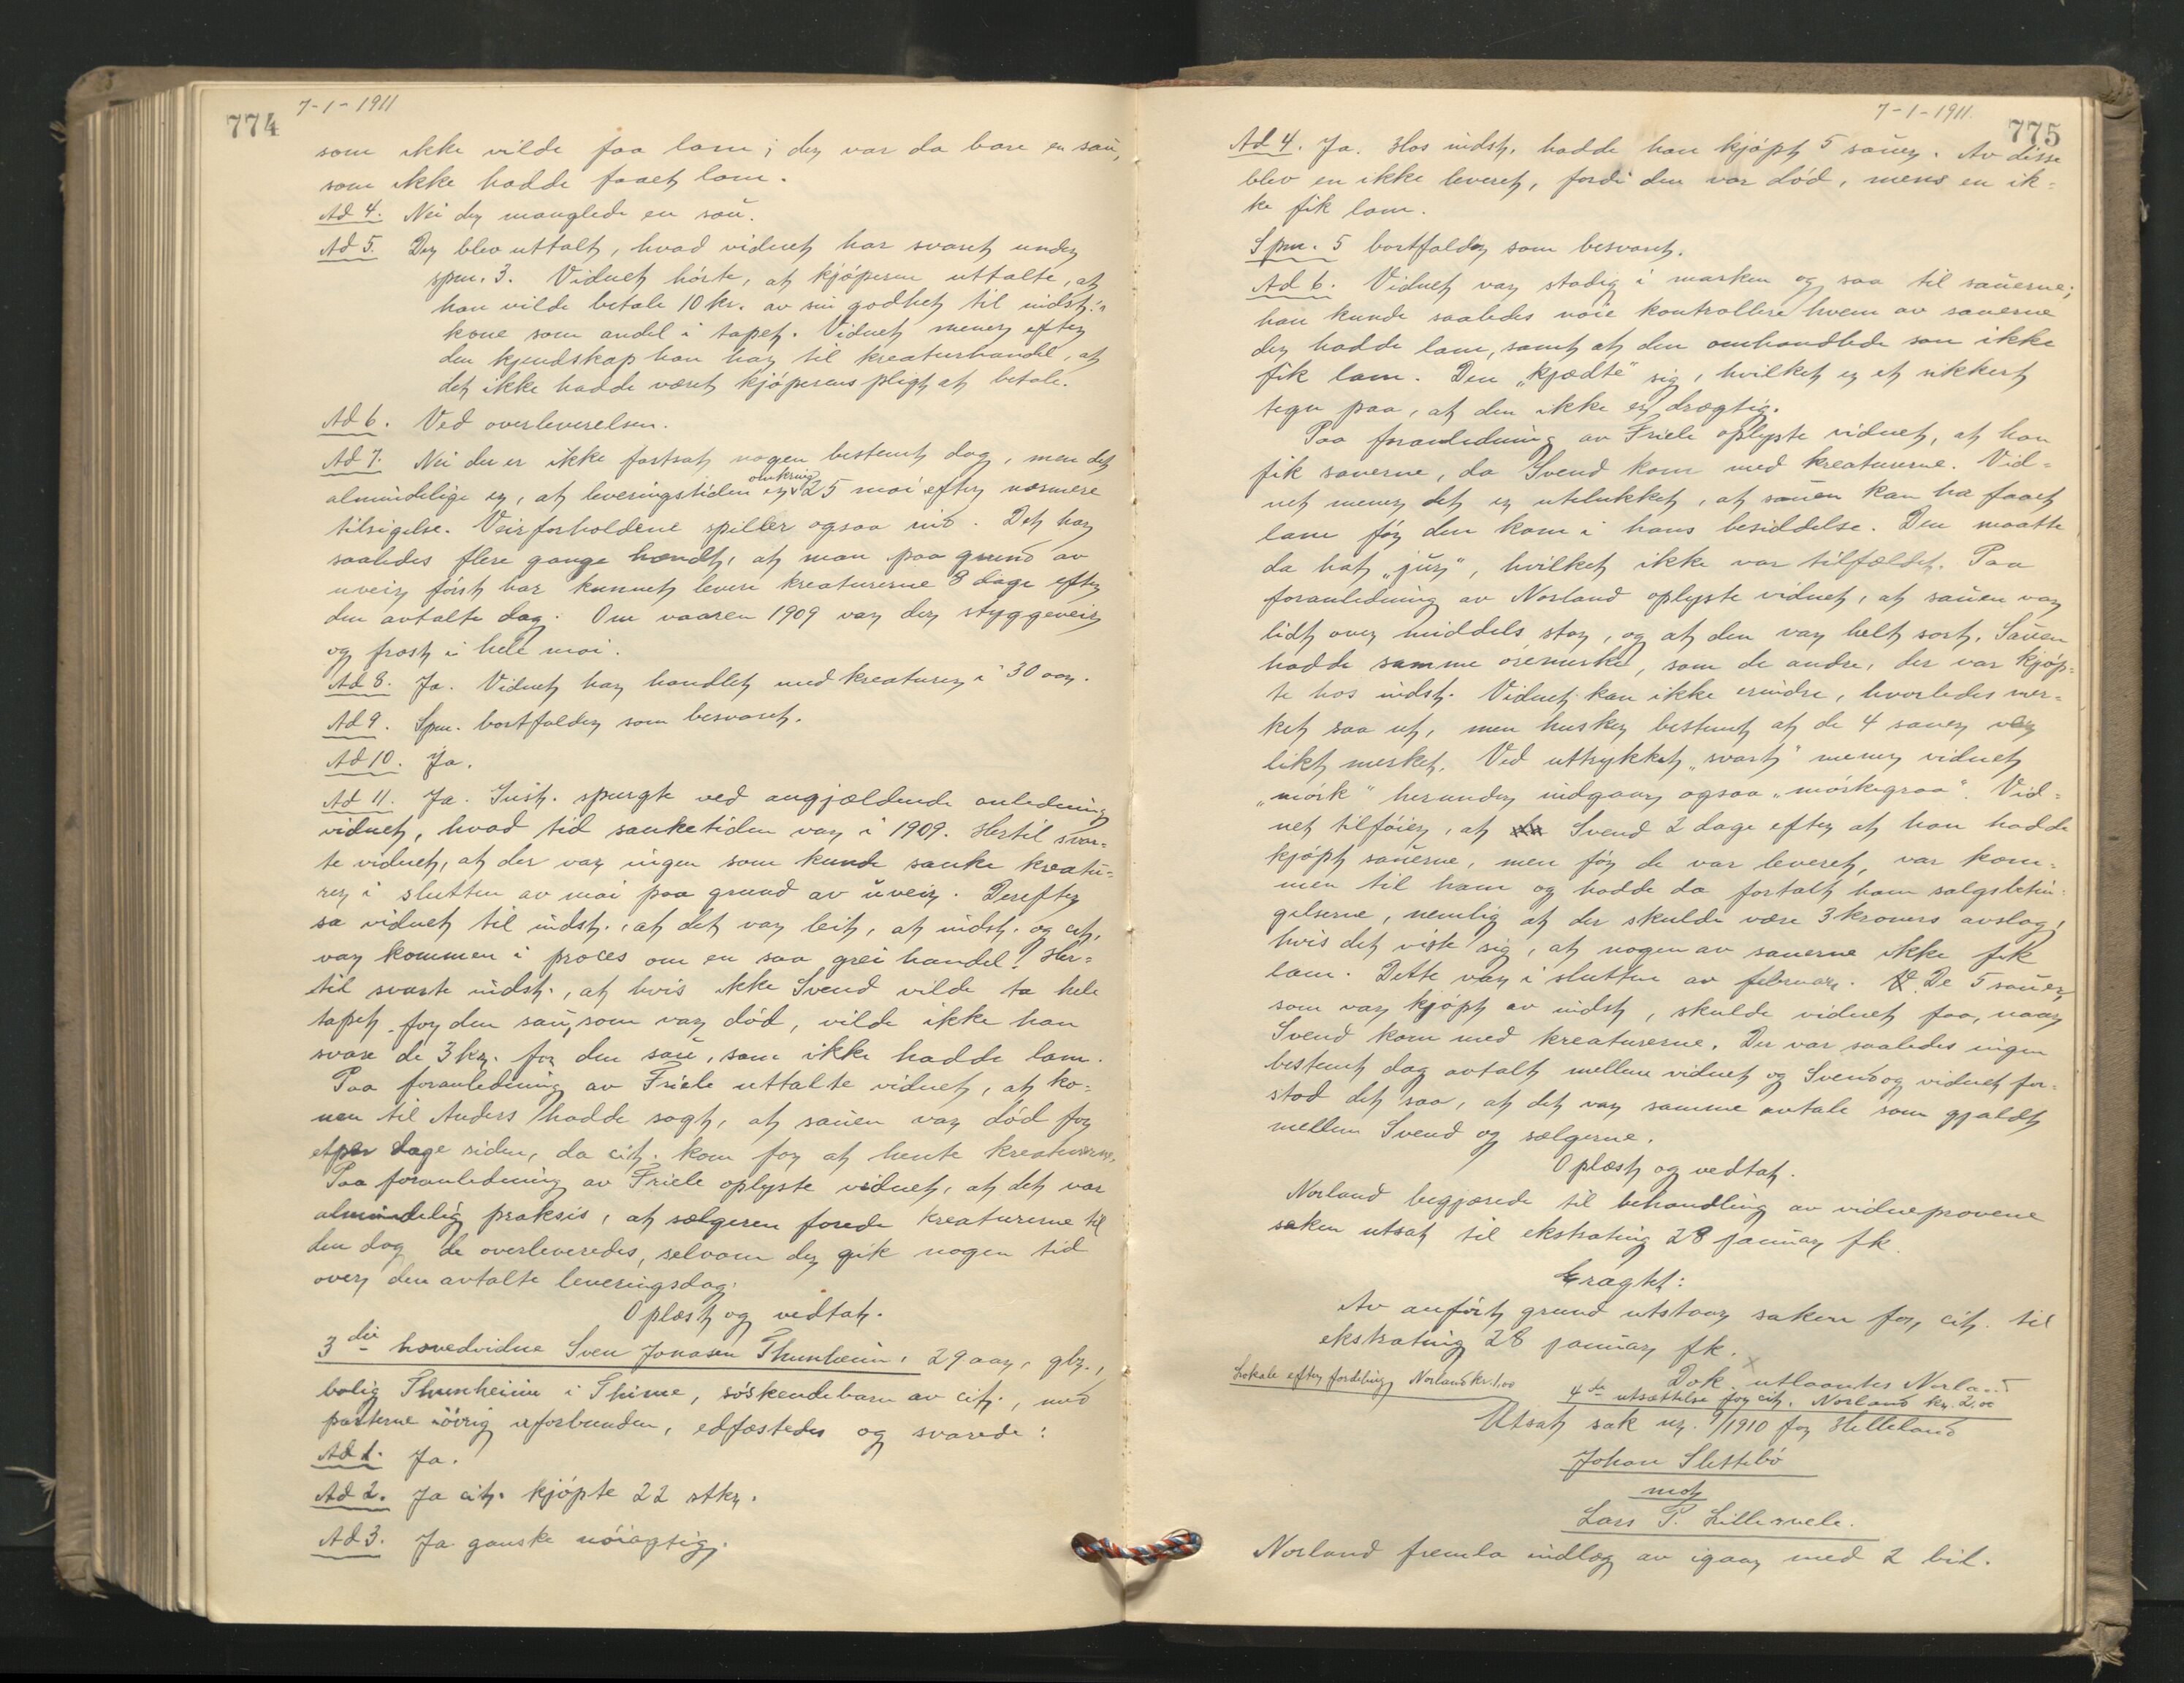 7-1-1911
774
som ikke vilde faa lam; der var da bare en sau,
som ikke hadde faaet lam.
Ad 4. Nei der manglede en sau.
Ad 5. Der blev uttalt, hvad vidnet har svaret under
spm. 3. Vidnet hørte, at kjøperen uttalte, at
han vilde betale 10 kr. av sin godhet til indst.'s
kone som andel i tapet. Vidnet mener efter
den kjendskap han har til kreaturhandel, at
det ikke hadde været kjøperens pligt at betale.
Ad 6. Ved overleverelsen.
Ad 7. Nei der er ikke fastsat nogen bestemt dag, men det
almindelige er, at leveringstiden er omkring 25 mai efter nærmere
tilsigelse. Veirforholdene spiller ogsaa ind. Det har
saaledes flere gange hændt, at man paa grund av
uveir først har kunnet levere kreaturerne 8 dage efter
den avtalte dag. Om vaaren 1909 var der styggeveir
og frost i hele mai.
Ad 8. Ja. Vidnet har handlet med kreaturer i 30 aar.
Ad 9. Spm. bortfalder som besvaret.
Ad 10. Ja.
Ad 11. Ja. Inst. spurgte ved angjældende anledning
vidnet, hvad tid sanketiden var i 1909. Hertil svar=
te vidnet, at der var ingen som kunde sanke kreatu=
rer i slutten av mai paa grund av uveir. Derefter
sa vidnet til indst., at det var leit, at indst. og cit.
var kommen i proces om en saa grei handel! Her=
til svarte indst., at hvis ikke Svend vilde ta hele
tapet for den sau, som var død, vilde ikke han
svare de 3 kr. for den sau, som ikke hadde lam.
Paa foranledning av Friele uttalte vidnet, at ko=
nen til Anders hadde sagt, at sauen var død for
etpar dage siden, da cit. kom for at hente kreaturerne.
Paa foranledning av Friele oplyste vidnet, at det var
almindelig praksis, at sælgeren forede kreaturerne til
den dag de overleveredes, selvom der gik nogen tid
over den avtalte leveringsdag.
Oplæst og vedtat.
3die hovedvidne Sven Jonasen Thunheim, 29 aar, gbr.,
bolig Thunheim i Thime, søskendebarn av cit., med
parterne iøvrig uforbunden, edfæstedes og svarede:
Ad 1. Ja.
Ad 2. Ja cit. kjøpte 22 stkr.
Ad 3. Ja ganske nøiagtig.
7-1-1911.
775
Ad 4. Ja. Hos indst. hadde han kjøpt 5 sauer. Av disse
blev en ikke leveret, fordi den var død, mens en ik=
ke fik lam.
Spm. 5 bortfalder som besvaret.
Ad 6. Vidnet var stadig i marken og saa til sauerne;
han kunde saaledes nøie kontrollere hvem av sauerne
der hadde lam, samt at den omhandlede sau ikke
fik lam. Den „kjædte" sig, hvilket er et sikkert
tegn paa, at den ikke er drægtig.
Paa foranledning av Friele oplyste vidnet, at han
fik sauerne, da Svend kom med kreaturerne. Vid=
net mener det er utelukket, at sauen kan ha faaet
lam før den kom i hans besiddelse. Den maatte
da hat „jur", hvilket ikke var tilfældet. Paa
foranledning av Norland oplyste vidnet, at sauen var
lidt over middels stor, og at den var helt sort. Sauen
hadde samme øremerke, som de andre, der var kjøp=
te hos indst. Vidnet kan ikke erindre, hvorledes mer=
ket saa ut, men husker bestemt at de 4 sauer var
likt merket. Ved uttrykket „svart" mener vidnet
„mørk" herunder indgaar ogsaa „mørkegraa". Vid=
net tilføier, at Svend 2 dage efter at han hadde
kjøpt sauerne, men før de var leveret, var kom=
men til ham og hadde da fortalt ham salgsbetin=
gelserne, nemlig at der skulde være 3 kroners avslag,
hvis det viste sig, at nogen av sauerne ikke fik
lam. Dette var i slutten av februar. De 5 sauer
som var kjøpt av indst, skulde vidnet faa, naar
Svend kom med kreaturerne. Der var saaledes ingen
bestemt dag avtalt mellem vidnet og Svend og vidnet for=
stod det saa, at det var samme avtale som gjaldt
mellem Svend og sælgerne.
Oplæst og vedtat.
Norland begjærede til behandling av vidneprovene
saken utsat til ekstrating 28 januar fk.
Eragtet:
Av anført grund utstaar saken for cit. til
ekstrating 28 januar fk.
Dok. utlaantes Norland
Lokale efter fordeling Norland kr. 1,00
4de utsættelse for cit. Norland kr. 2,00
Utsat sak nr. 9/1910 for Helleland
Johan Slettebø
mot
Lars P. Lille
Norland fremla indlæg av igaar med 2 bil.